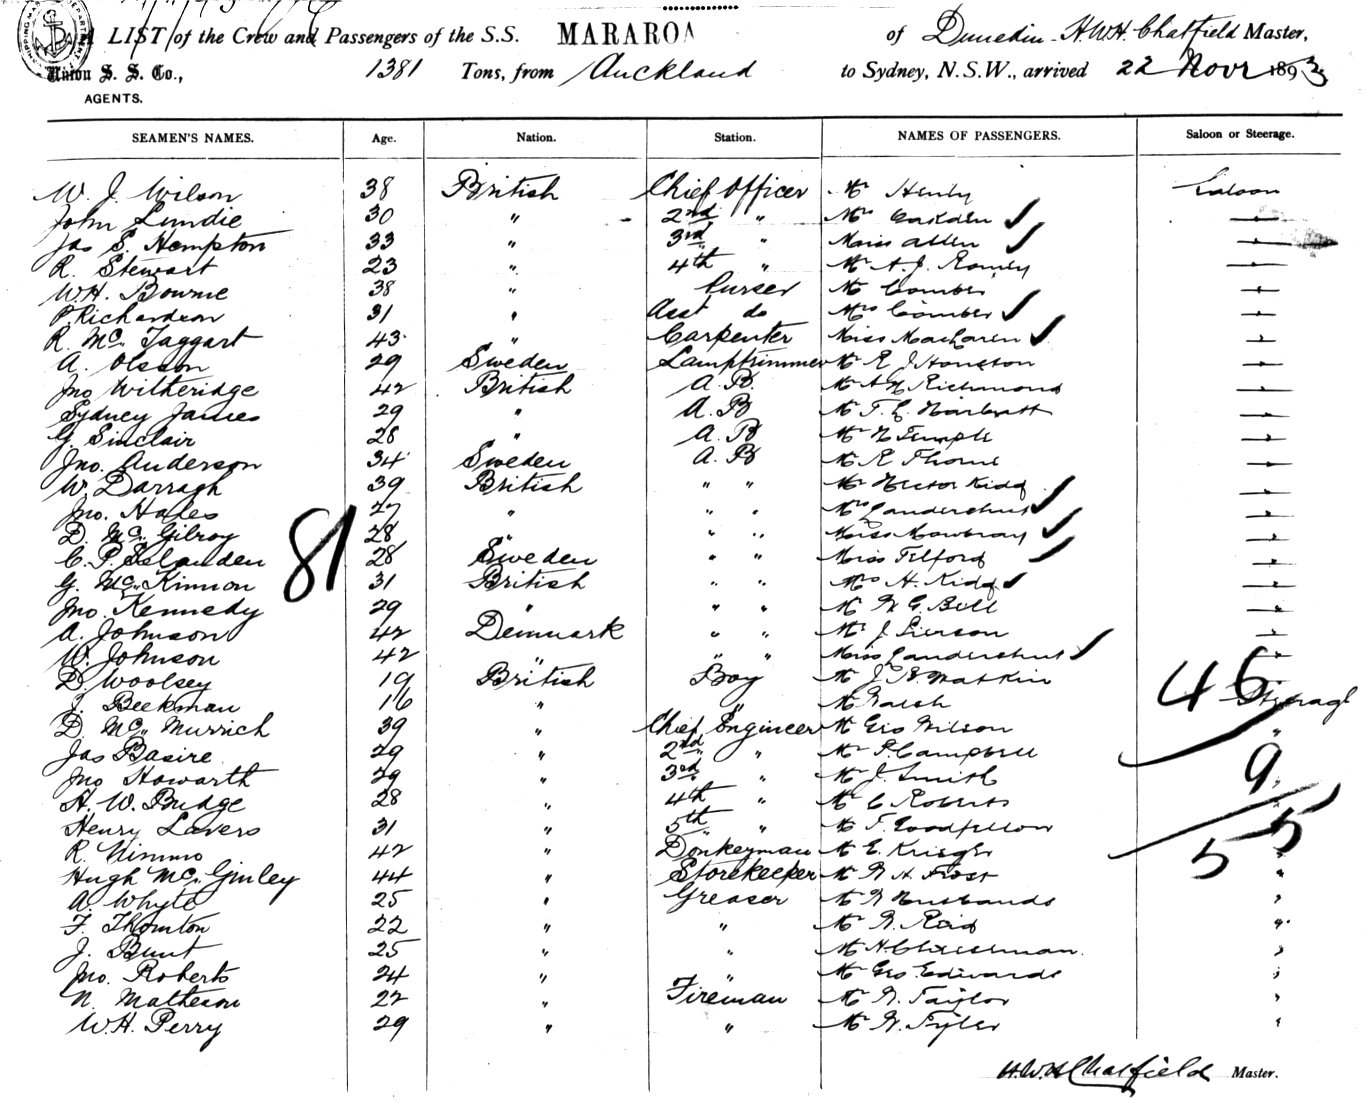 A LIST of the Crew and Passengers of the S.S. MARAROA of Dunedin H.W.H. Chatfield Master,
Union S. S. Co., 1381 Tons, from Auckland to Sydney, N.S.W., arrived 22 Novr 1893
AGENTS.
SEAMEN'S NAMES. Age. Nation. Station. NAMES OF PASSENGERS. Saloon or Steerage.
W. J. Wilson 38 British Chief Officer Mr Henly Saloon
John Lundie 30 " 2nd " Mrs Eakden
Jas S. Hempton 33 " 3rd " Miss Allen
R. Stewart 23 " 4th " Mr A. J.
W.H. Bowne 38 " Purser Mr Comber
P Richardson 31 " Asst do Mrs Comber
R. McTaggart 43 " Carpenter Miss MacLaren
A. Olsson 29 Sweden Lamptrimmer Mr R J Houston
Jno Witheridge 42 British A.B. Mr A Richmond
Sydney James 29 " A.B Mr T. C.
G. Sinclair 28 " A.B Mr Temple
Jno. Anderson 34 Sweden A.B Mr R Thorne
W. Darragh 39 British " " Mr Hector Kidd
Jno. Hales 27 " " " Mrs Landershut
D. McGilroy 28 " " " Miss Mowbray
C. P. Selanden 28 Sweden " " Miss Tilford
G. McKinnon 31 British " " Mrs H. Kidd
Jno. Kennedy 29 " " " Mr W. G. Bell
A. Johnson 42 Denmark " " Mr J Pierson
W. Johnson 42 " " " Miss Landershut
D. Woolsey 19 British Boy Mr J. Watkin
J. Beekman 16 " " Mr Walsh Steerage
D. McMurrich 39 " Chief Engineer Mr Geo Wilson "
Jas Basire 29 " 2nd " Mr P. Campbell
Jno Howarth 29 " 3rd " Mr J. Smith "
H. W. Budge 28 " 4th " Mr C Roberts "
Henry Lavers 31 " 5th " Mr T. Goodfellow
R. Nimmo 42 " Donkeyman Mr E. Kriegh "
Hugh McGinley 44 " Storekeeper Mr W H Frost "
A. Whyte 25 " Greaser Mr W Husbands "
F. Thornton 22 " " Mr W. Reid "
J. Bunt 25 " " Mr H Cheeseman "
Jno. Roberts 24 " " Mr Geo Edwards "
N. Matheson 22 " Fireman Mr W. Taylor "
W.H. Perry 29 " " Mr W. Tyler "
81
46
9
55
H.W.H Chatfield Master.